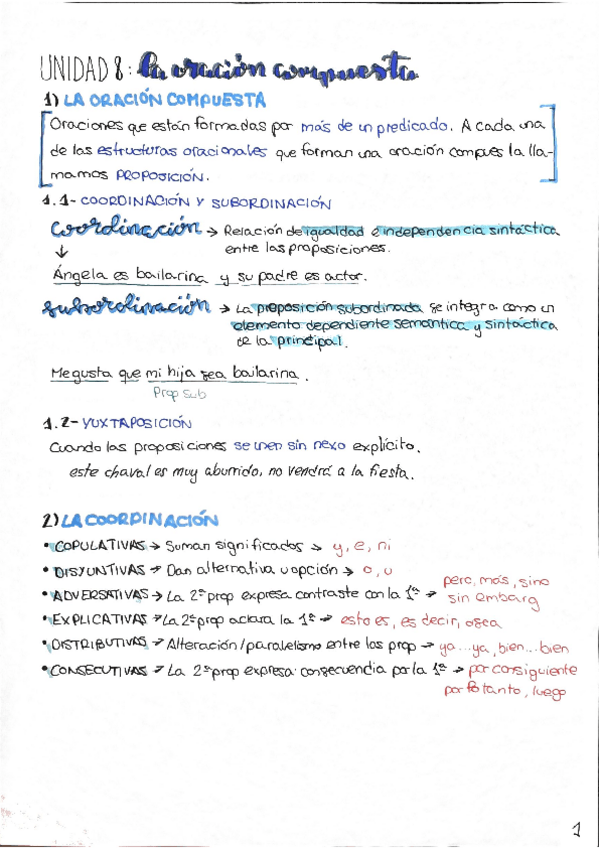 UNIDAD 8: La oración compuesta
1) LA ORACIÓN COMPUESTA
Oraciones que están formadas por más de un predicado. A cada una
de las estructuras oracionales que forman una oración compues la lla-
mamos PROPOSICIÓN.
1.1- COORDINACIÓN Y SUBORDINACIÓN
Coordinación → Relación de igualdad e independencia sintáctica
entre las proposiciones.
↓
Ángela es bailarina y su padre es actor.
subordinación → La preposición subordinada se integra como un
elemento dependiente semántica y sintáctica
de la principal.
Me gusta que mi hija sea bailarina.
Prop Sub
1.2- YUXTAPOSICIÓN
Cuando las proposiciones se unen sin nexo explícito.
este chaval es muy aburrido, no vendrá a la fiesta.
2) LA COORDINACIÓN
• COPULATIVAS → Suman significados → y, e, ni
• DISYUNTIVAS → Dan alternativa u opción → o, u
• ADVERSATIVAS → La 2ª prop expresa contraste con la 1ª → pero, más, sino
sin embarg
• EXPLICATIVAS → La 2ª prop aclara la 1ª → esto es, es decir, o sea
• DISTRIBUTIVAS → Alteración/paralelismo entre las prop → ya...ya, bien...bien
• CONSECUTIVAS → La 2ª prop expresa consecuencia por la 1ª → por consiguiente
por lo tanto, luego
1